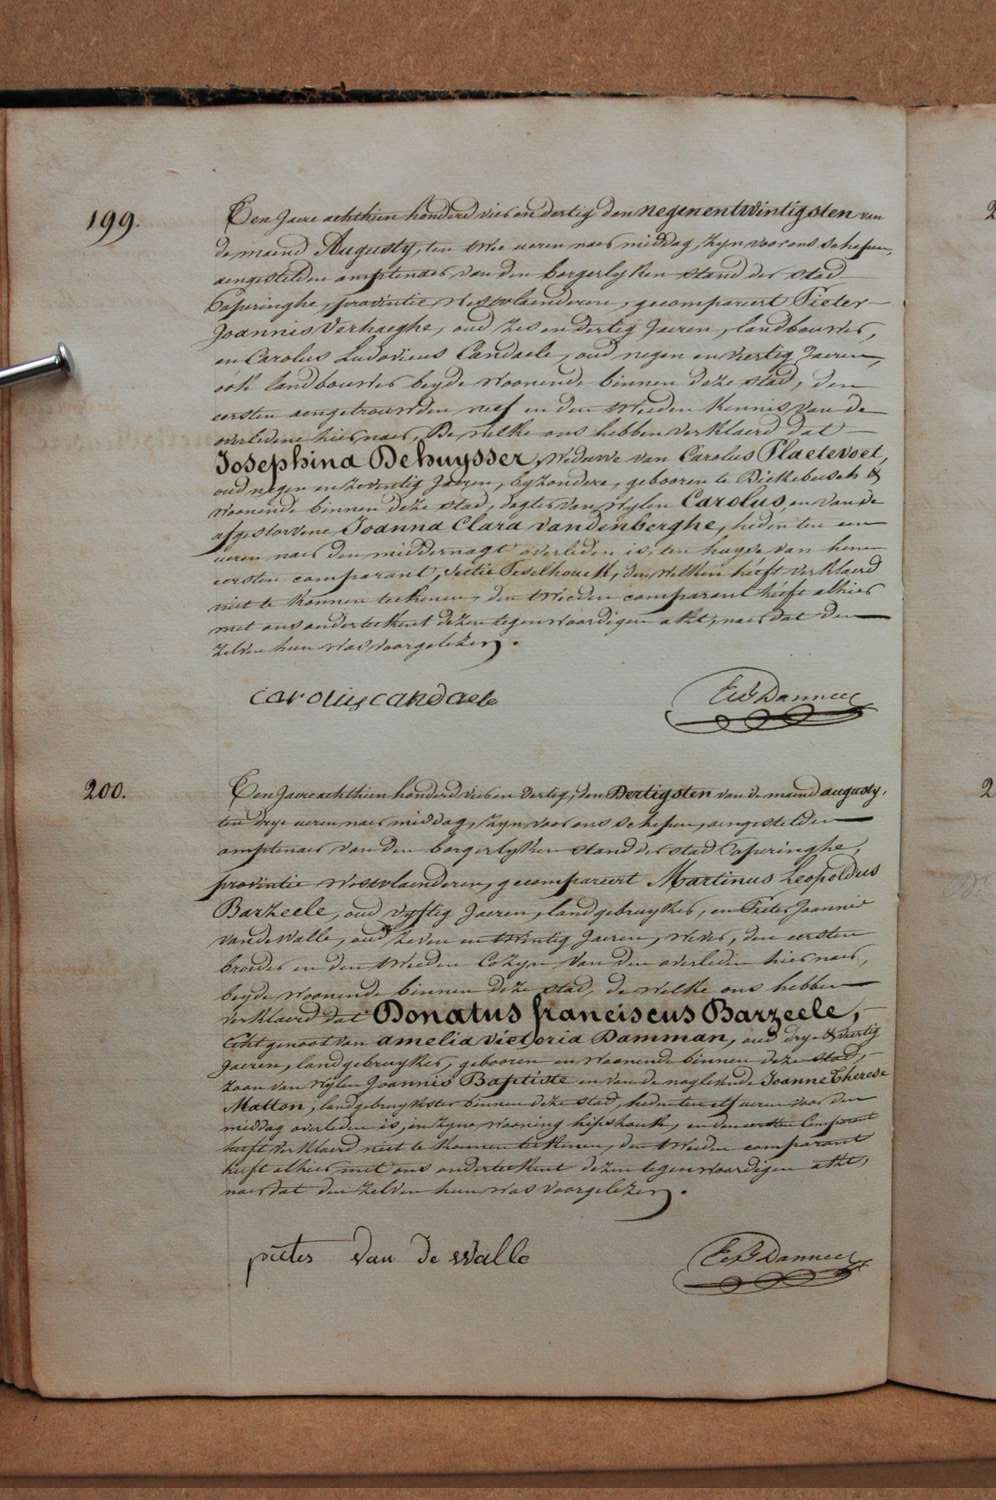 199.
Ten Jaere achthien honderd vier en dertig den negenentwintigsten van
de maend Augusty, ten twee ueren naer middag, zyn voor ons schepen,
aengestelden amptenaer van den borgerlyken stand der stad
Poperinghe, provintie Westvlaenderen, gecompareert Pieter
Joannis Verhaeghe, oud zes en dertig Jaeren, landbouwer,
en Carolus Ludovicus Candaele, oud negen en veertig Jaeren,
ook landbouwer beyde woonende binnen deze stad, den
eersten aengetrouwden neef en den tweeden kennis van de
overledene hier naer, De welke ons hebben verklaerd dat
Josephina Dehuysser, Weduwe van Carolus Plaetevoet,
oud negen en zeventig Jaeren, byzondere, gebooren te Dickebusch &
woonende binnen deze stad, dogter van wylen Carolus, en van de
afgestorvene Joanna Clara Vandenberghe, heden ten een
ueren naer den middernagt overleden is, ten huyse van henen
eersten comparant, Sectie Peselhoueck, den welken heeft verklaerd
niet te konnen teekenen, den tweeden comparant heeft alhier
met ons onderteekent dezen tegenwoordigen akt, naer dat den
zelven hun was voorgelezen.
carolus candaele
200.
Ten Jaere achthien honderd vier en dertig, den Dertigsten van de maend augusty,
ten drye ueren naer middag, zyn voor ons schepen, aengestelden
amptenaer van den borgerlyken stand der stad Poperinghe,
provintie Westvlaenderen, gecompareert Martinus Leopoldus
Barzeele, oud vyftig Jaeren, landgebruyker, en Pieter Joannes
vandewalle, oud zeven en twintig Jaeren, wever, den eersten
broeder en den tweeden Cozyn van den overleden hier naer,
beyde woonende binnen deze stad, de welke ons hebben
verklaerd dat Donatus franciscus Barzeele,
Echtgenoot van amelia victoria Damman, oud drye & veertig
Jaeren, landgebruyker, gebooren en woonende binnen deze stad,
zoon van wylen Joannis Baptiste en van de naglevende Joanne Therese
Matton, landgebruykster binnen deze stad, heden ten elf ueren voor den
middag overleden is, in zyne wooning hipshouk, en den eersten Comparant
heeft verklaerd niet te konnen teekenen, den tweeden comparant
heeft alhier met ons onderteekent dezen tegenwoordigen akt,
naer dat den zelven hun was voorgelezen.
pieter Van de Walle